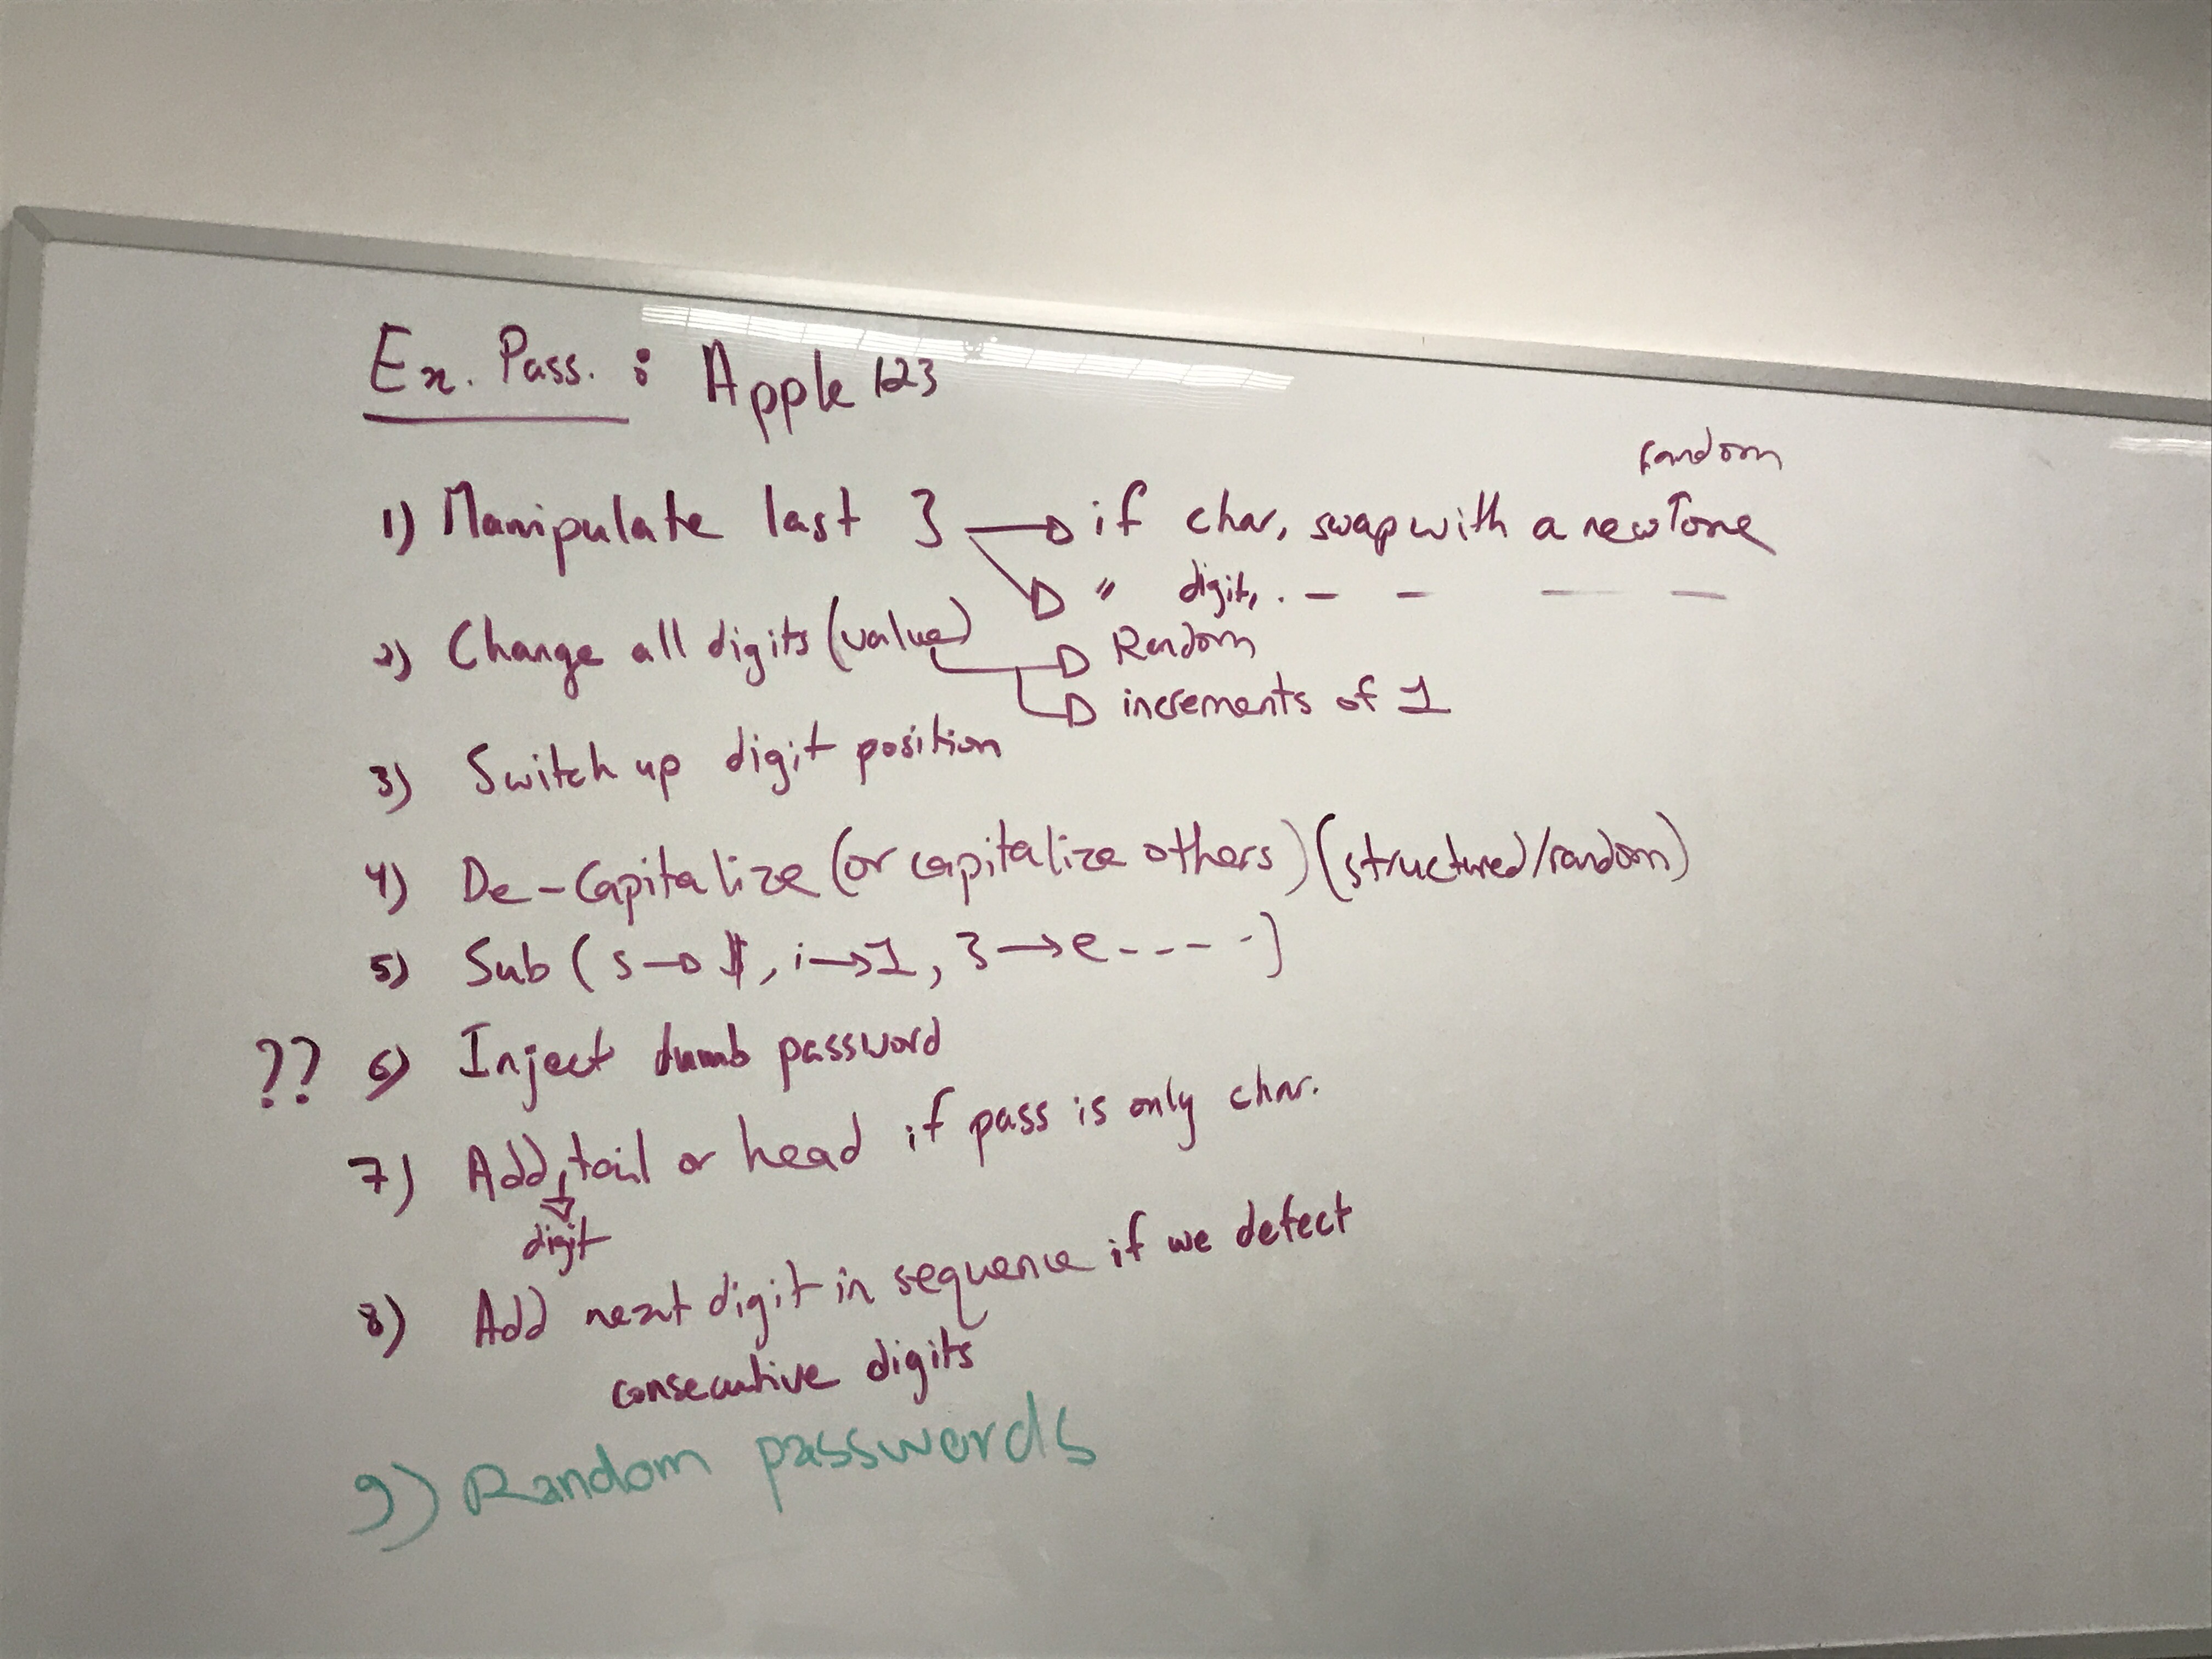 Ex. Pass. : Apple 123
random
1) Manipulate last 3 → if char, swap with a new one
→ " digit, . - - — —
2) Change all digits (value) → Random
→ increments of 1
3) Switch up digit position
4) De-Capitalize (or capitalize others) (structured/random)
5) Sub ( s → $, i → 1, 3 → e - - - - )
?? 6) Inject dumb password
7) Add tail or head if pass is only char.
digit
8) Add next digit in sequence if we detect
consecutive digits
9) Random passwords